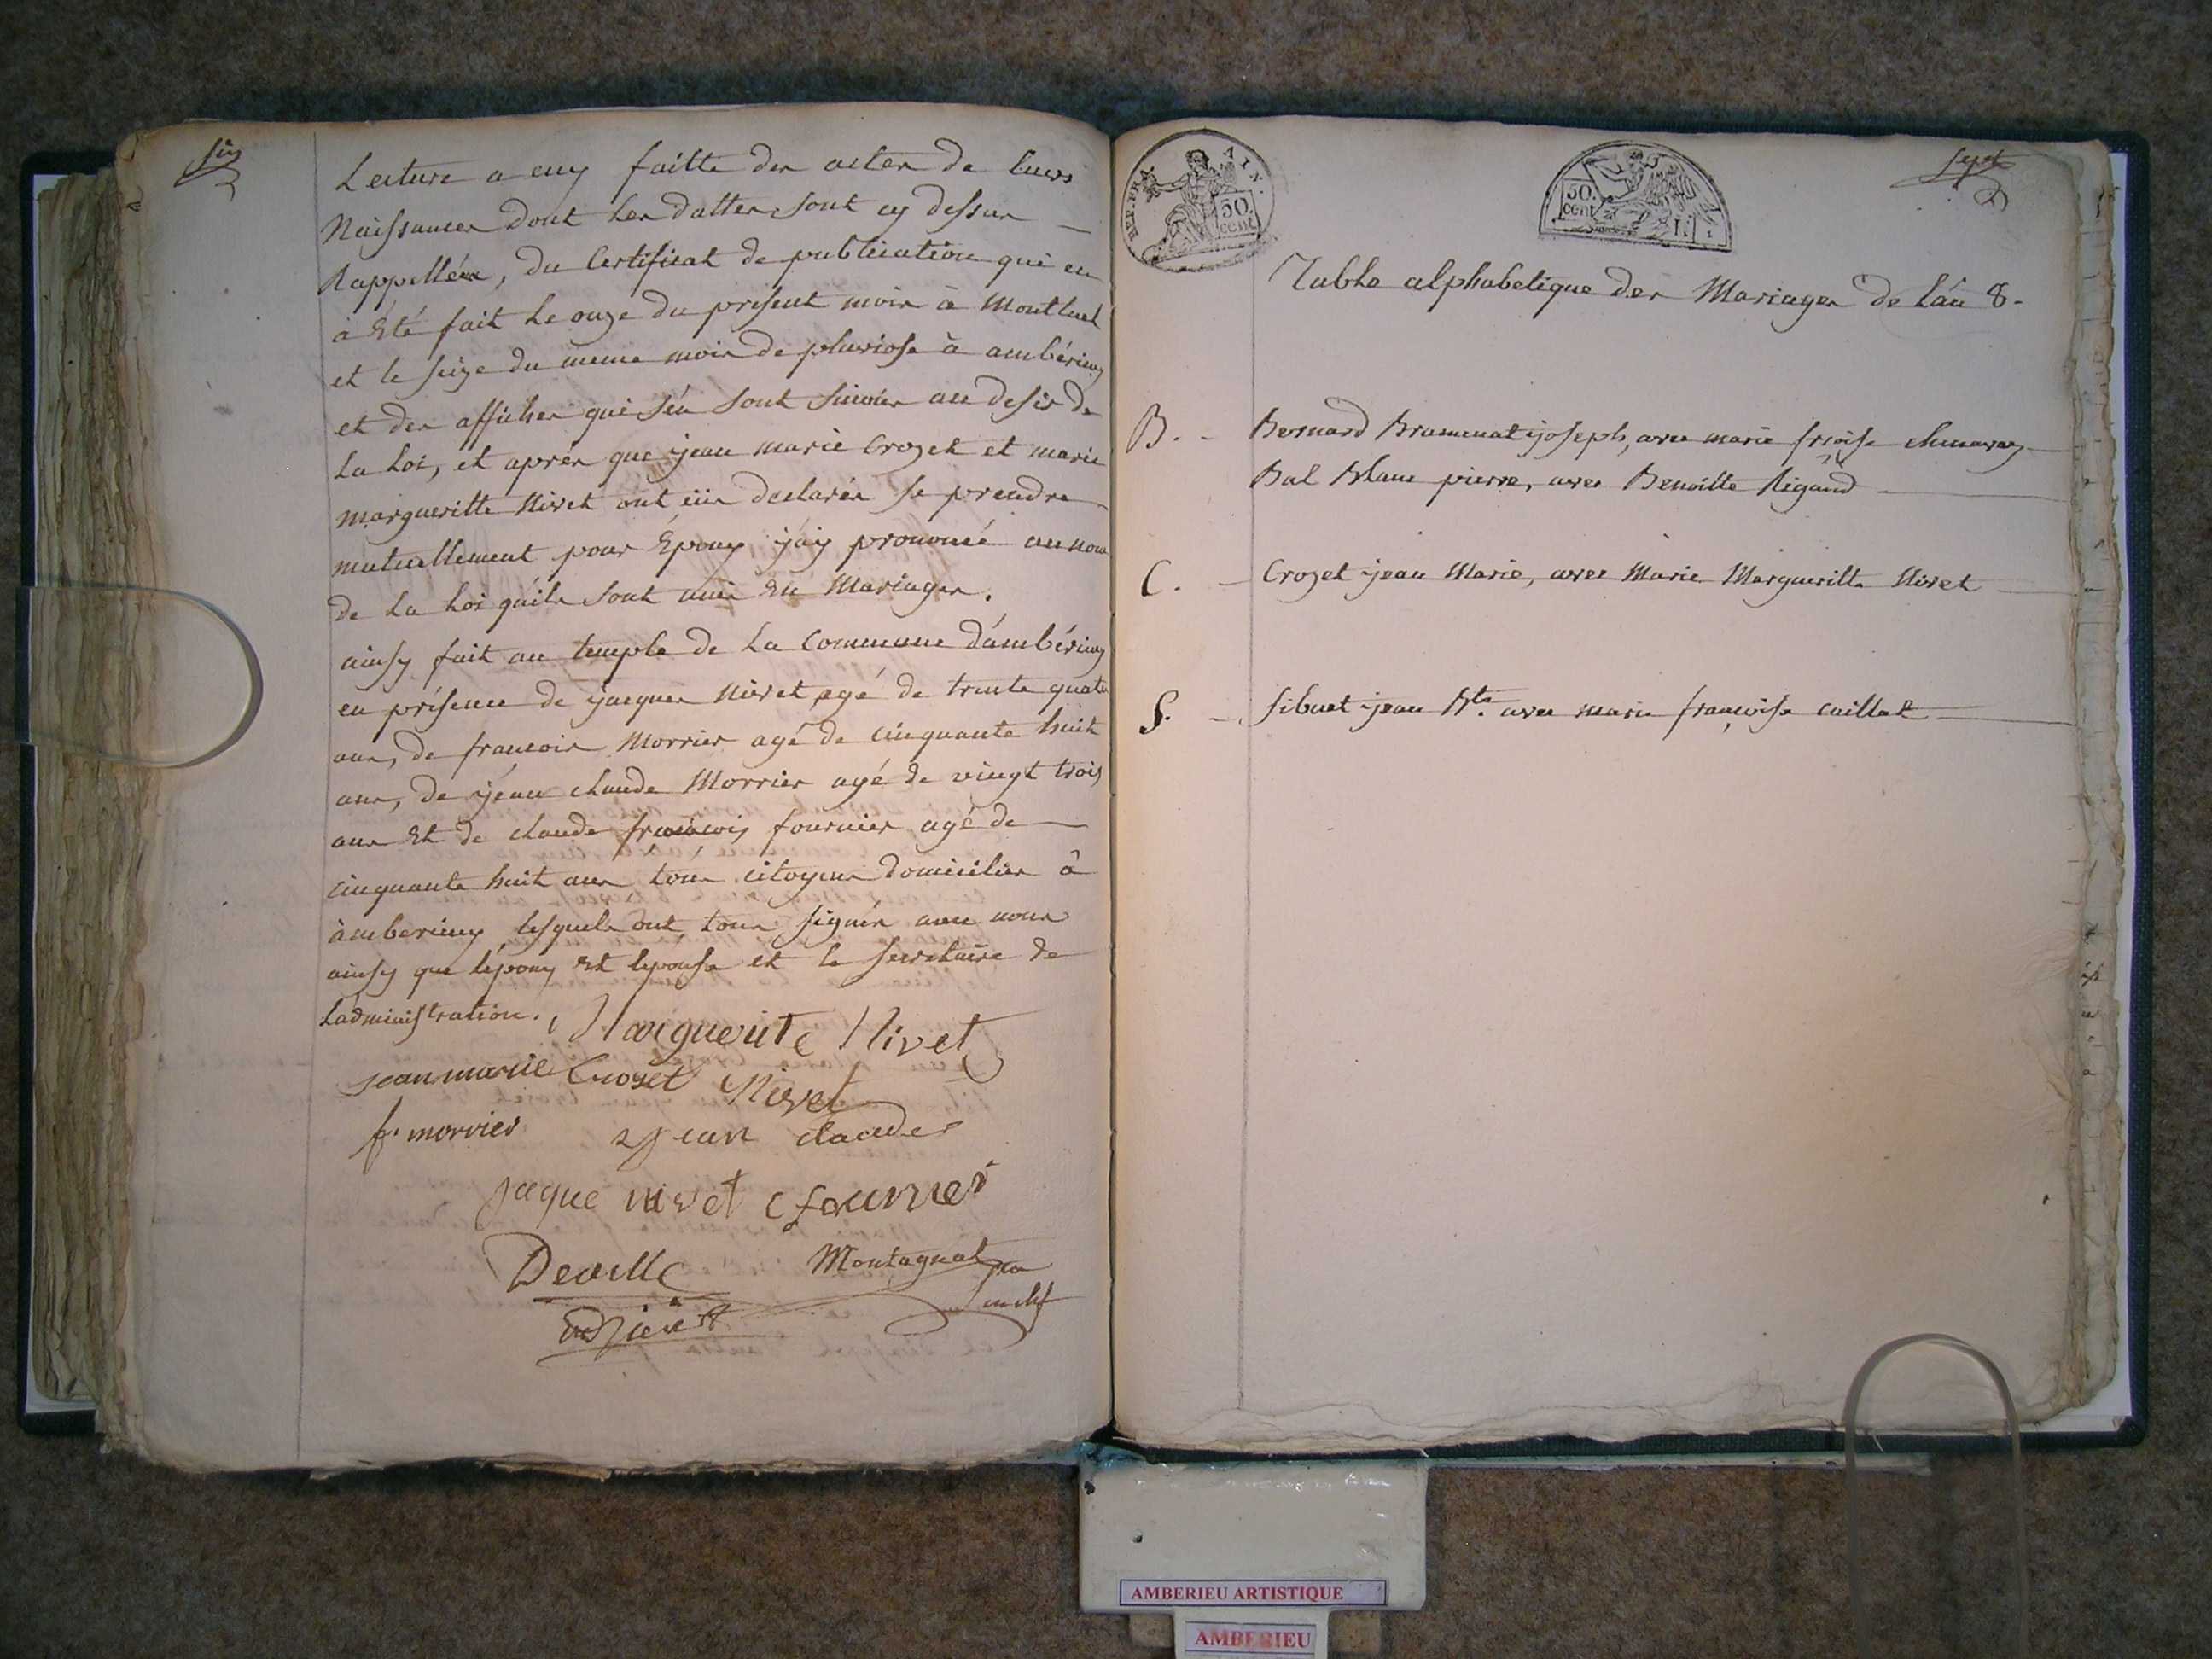 six
Lecture a eux faitte des actes de leurs
Naissances dont les dattes sont cy dessus
Rappellées, du Certificat de publication qui en
à Eté fait le onze du présent mois à Montluel
et le seize du meme mois de pluviose à ambérieux
et des affiches qui s'én sont suivies au desir de
La Loi, et après que jean marie Crozet et marie
margueritte Nivet ont déclarés se prendre
mutuellement pour Époux j'áy prononcé au nom
de La Loi qúils sont unis En Mariages.
ainsy fait au temple de La Commune d'ambérieux
en présence de jacques Nivet agé de trente quatre
ans, de francois Morrier agé de cinquante huit
ans, de jean claude Morrier agé de vingt trois
ans Et de claude francois fournier agé de
cinquante huit ans tous citoyens domiciliés à
àmberieux lesquels ont tous signés avec nous
ainsy que lépoux Et lepouse et le secretaire de
Ládministration.
Marguerite Nivet
jean marie Crozet Nivet
f. morrier jean claude
jaque nivet C fournier
Deville Montagnat
en chef
adjoint
REP. FRA. AIN.
50. cent
50. cent
sept
Table alphabetique des Mariages de Lán 8.
B. Bernard Brammat joseph, avec marie frcoise
Bal Blanc pierre, avec Benoitte Rigaud
C. Crozet jean Marie, avec Marie Margueritte Nivet
S. Sibuet jean Bte. avec marie françoise caillat
AMBERIEU ARTISTIQUE
AMBERIEU